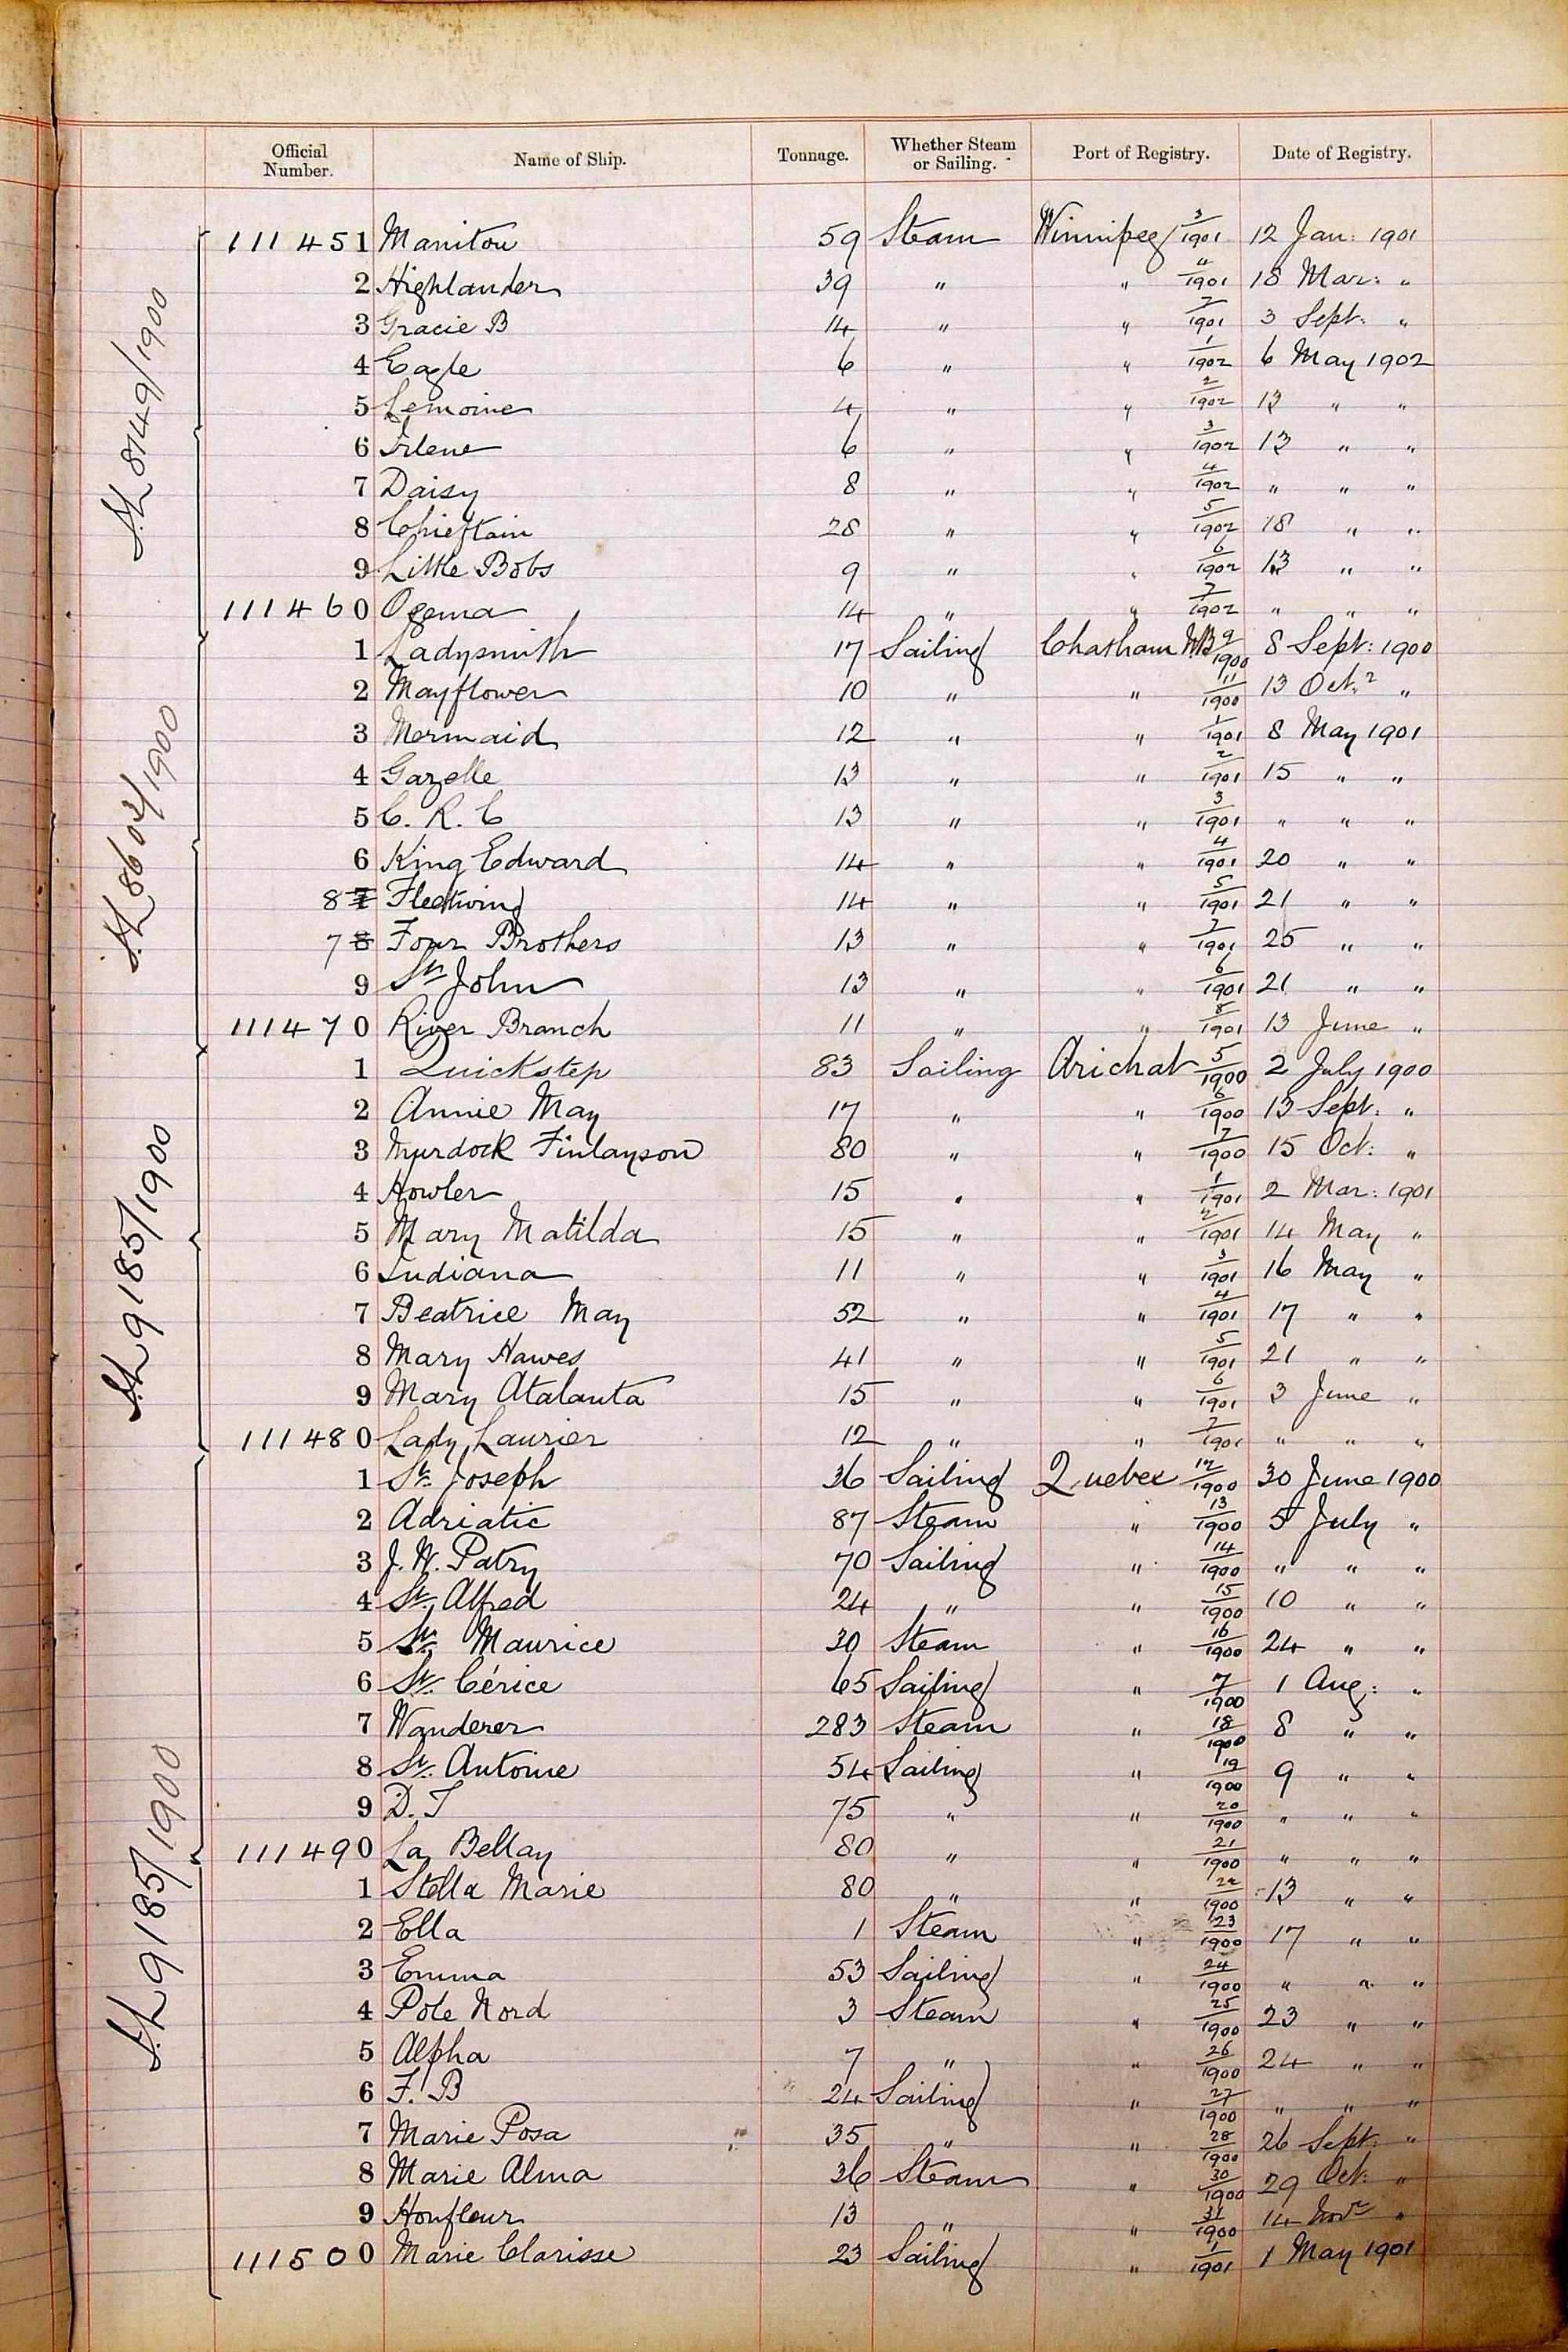 Official Number. Name of Ship. Tonnage. Whether Steam or Sailing. Port of Registry. Date of Registry.
111451 Manitou 59 Steam Winnipeg 3/1901 12 Jan: 1901
2 Highlander 39 " " 4/1901 18 Mar: "
3 Gracie B 14 " " 7/1901 3 Sept: "
4 Eagle 6 " " 1/1902 6 May 1902
5 Lemoine 4 " " 2/1902 13 " "
6 Irlene 6 " " 3/1902 13 " "
7 Daisy 8 " " 4/1902 " " "
8 Chieftain 28 " " 5/1902 18 " "
9 Little Bobs 9 " " 6/1902 13 " "
111460 Ogema 14 " " 7/1902 " " "
8149/1900
1 Ladysmith 17 Sailing Chatham NB 9/1900 8 Sept: 1900
2 Mayflower 10 " " 11/1900 13 Oct.r "
3 Mermaid 12 " " 1/1901 8 May 1901
4 Gazelle 13 " " 2/1901 15 " "
5 C. R. C 13 " " 3/1901 " " "
6 King Edward 14 " " 4/1901 20 " "
8 7 Fleetwing 14 " " 5/1901 21 " "
7 8 Four Brothers 13 " " 7/1901 25 " "
9 St John 13 " " 6/1901 21 " "
111470 River Branch 11 " " 8/1901 13 June "
8602/1900
1 Quickstep 83 Sailing Arichat 5/1900 2 July 1900
2 Annie May 17 " " 6/1900 13 Sept: "
3 Murdock Finlayson 80 " " 7/1900 15 Oct: "
4 Howler 15 " " 1/1901 2 Mar: 1901
5 Mary Matilda 15 " " 2/1901 14 May "
6 Indiana 11 " " 3/1901 16 May "
7 Beatrice May 52 " " 4/1901 17 " "
8 Mary Hawes 41 " " 5/1901 21 " "
9 Mary Atalanta 15 " " 6/1901 3 June "
111480 Lady Laurier 12 " " 7/1901 " " "
9185/1900
1 St. Joseph 36 Sailing Quebec 12/1900 30 June 1900
2 Adriatic 87 Steam " 13/1900 5 July "
3 J. W. Patry 70 Sailing " 14/1900 " " "
4 St. Alfred 24 " " 15/1900 10 " "
5 St. Maurice 30 Steam " 16/1900 24 " "
6 St. Cérice 65 Sailing " 7/1900 1 Aug: "
7 Wanderer 283 Steam " 18/1900 8 " "
8 St. Antoine 54 Sailing " 19/1900 9 " "
9 D. T 75 " " 20/1900 " " "
111490 La Bellay 80 " " 21/1900 " " "
1 Stella Marie 80 " " 22/1900 13 " "
2 Ella 1 Steam " 23/1900 17 " "
3 Emma 53 Sailing " 24/1900 " " "
4 Pole Nord 3 Steam " 25/1900 23 " "
5 Alpha 7 " " 26/1900 24 " "
6 F. B 24 Sailing " 27/1900 " " "
7 Marie Posa 35 " " 28/1900 26 Sept: "
8 Marie Alma 36 Steam " 30/1900 29 Oct: "
9 Honfleur 13 " " 31/1900 14 Novr "
111500 Marie Clarisse 23 Sailing " 1/1901 1 May 1901
9185/1900